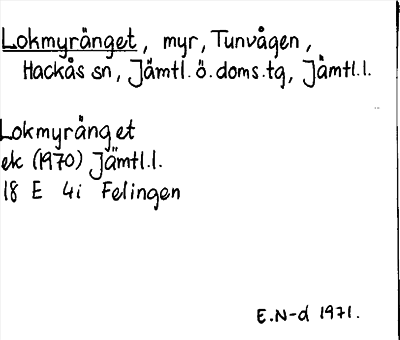 Lokmyränget, myr, Tunvågen,
Hackås sn, Jämtl. ö. doms.tg, Jämtl.l.
Lokmyränget
ek (1970) Jämtl.l.
18 E 4i Felingen
E.N-d 1971.